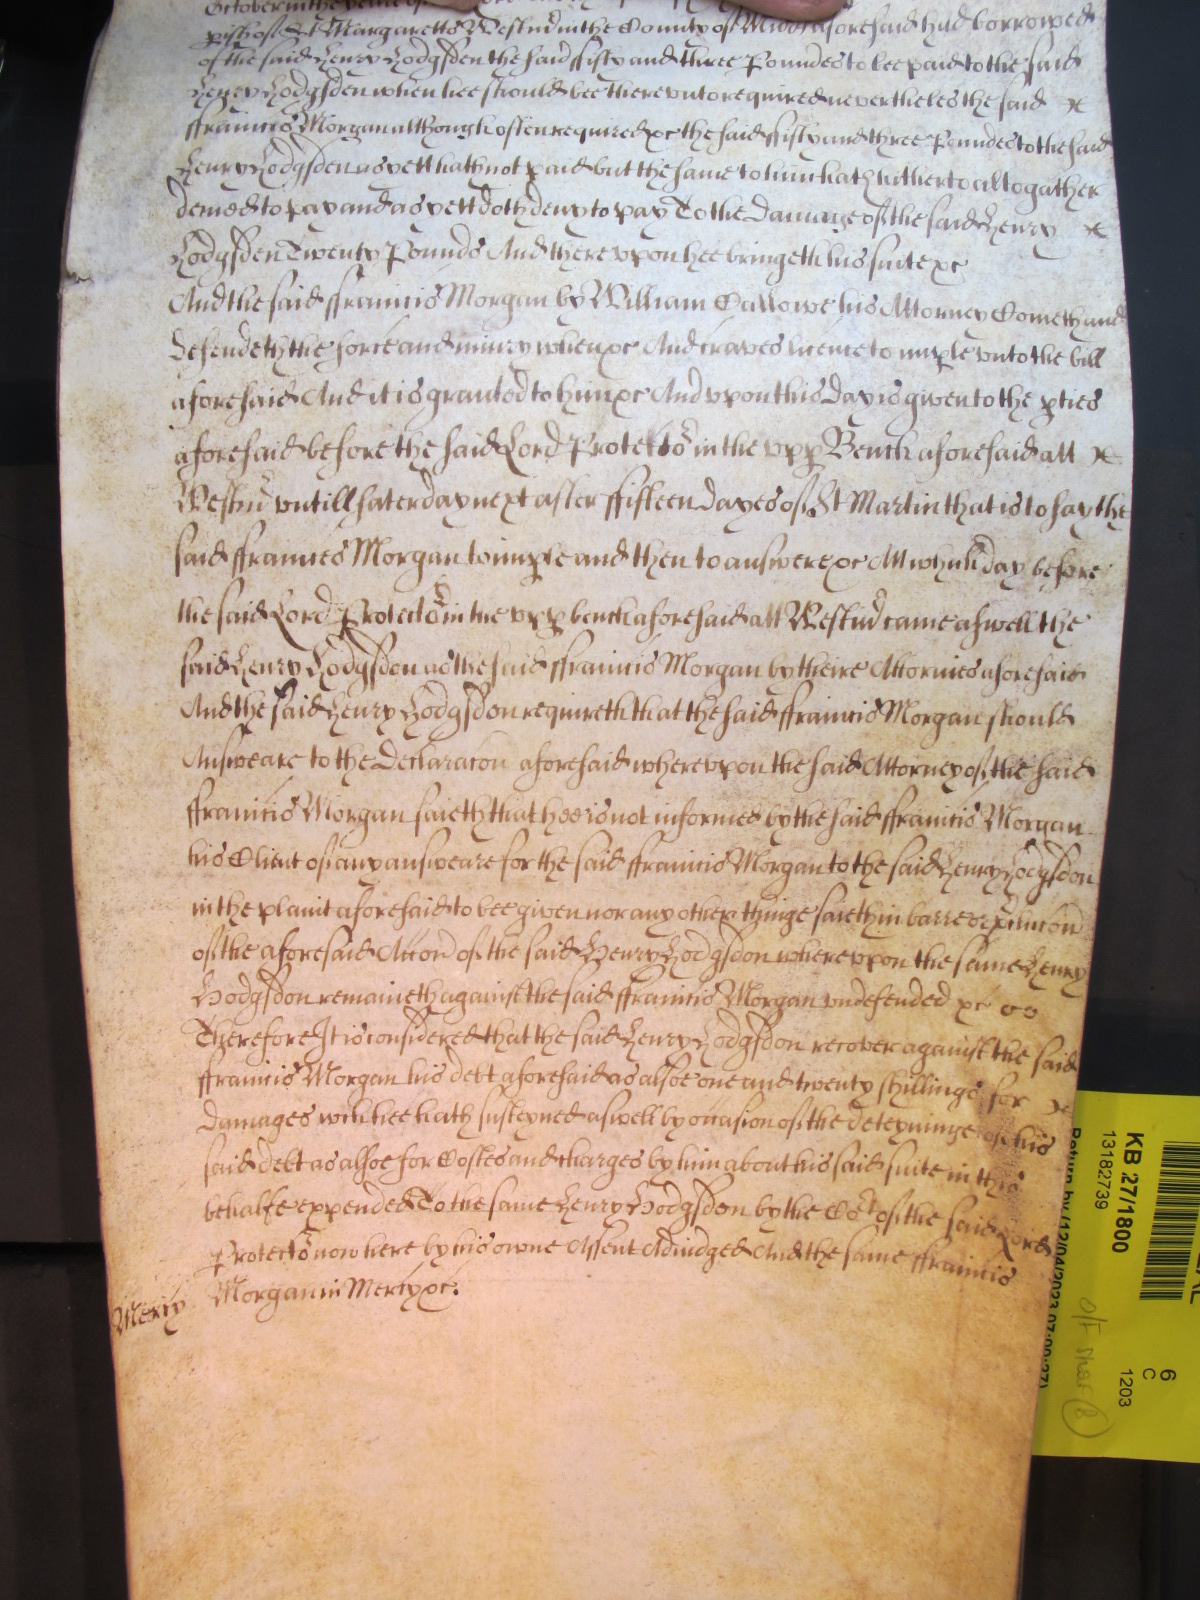 October in the yeare of
pish of St Margaretts Westm in the County of Midd aforesaid had borrowed
of the said Henry Hodgsden the said ffifty and three Poundes to bee paid to the said
Henry Hodgsden when hee should bee thereunto required nevertheles the said
ffrancis Morgan although often required &c the said ffifty and three Poundes to the said
Henry Hodgsden as yett hath not paid but the same to him hath hitherto altogather
denied to pay and as yett doth deny to pay To the Damage of the said Henry
Hodgsden Twenty Pounds And thereupon hee bringeth his suite &c
And the said ffrancis Morgan by William Callowe his Attorney Cometh and
defendeth the force and iniury when &c And craves licence to imple unto the bill
aforesaid And it is granted to him &c And upon this Day is given to the pties
aforesaid before the said Lord Protector in the upp Bench aforesaid att
Westm untill saterday next after ffifteen dayes of St Martin that is to say the
said ffrancis Morgan to imple and then to answere &c Att which day before
the said Lord Protector in the upp bench aforesaid att Westm came aswell the
said Henry Hodgsdon as the said ffrancis Morgan by theire Attornies aforesaid
And the said Henry Hodgsdon requireth that the said ffrancis Morgan should
Answeare to the Declaracon aforesaid whereupon the said Attorney of the said
ffrancis Morgan saieth that hee is not informed by the said ffrancis Morgan
his Client of any answeare for the said ffrancis Morgan to the said Henry Hodgsdon
in the plaint aforesaid to bee given nor any other thinge saieth in barre or
of the aforesaid Accon of the said Henry Hodgsdon whereupon the same Henry
Hodgsdon remaineth against the said ffrancis Morgan undefended &c
Therefore It is considered that the said Henry Hodgsdon recover against the said
ffrancis Morgan his debt aforesaid as alsoe one and twenty shillings for
Damages which hee hath susteyned aswell by occasion of the deteyninge of his
said debt as alsoe for Costes and charges by him about his said suite in this
behalfe expended To the same Henry Hodgsdon by the Cot of the said Lord
Protector now here by his owne Assent Adiudged And the same ffrancis
Morgan in Mercy &c.
Mercy
KB 27/1800
13182739
6
C
1203
Return by (12/04/2023 07:00:27)